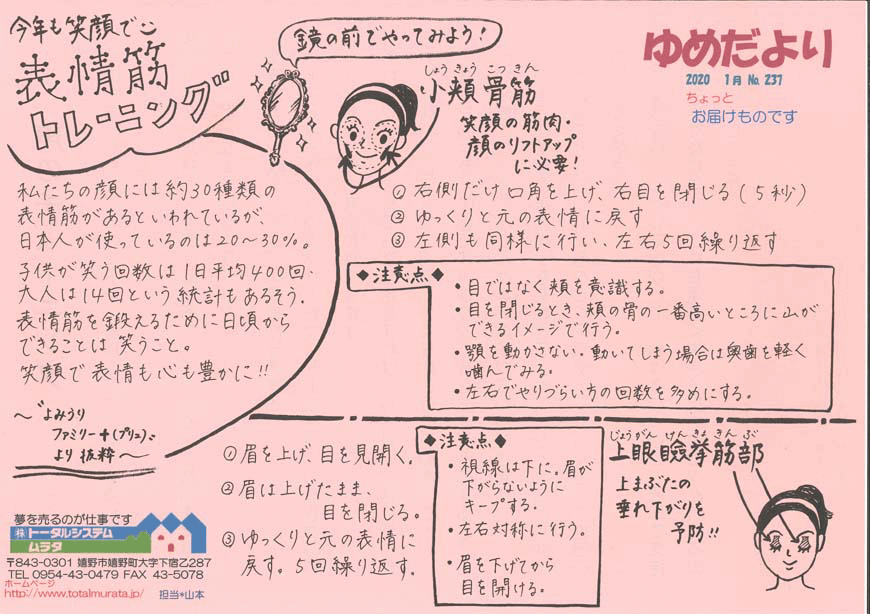 今年も笑顔で
表情筋
トレーニング
鏡の前でやってみよう！
ゆめだより
2020 1月 No. 237
ちょっと
お届けものです
私たちの顔には約30種類の
表情筋があるといわれているが、
日本人が使っているのは20～30%。
子供が笑う回数は1日平均400回、
大人は14回という統計もあるそう。
表情筋を鍛えるために日頃から
できることは笑うこと。
笑顔で表情も心も豊かに!!
～"よみうり
ファミリー＋(プリュ)"
より抜粋～
しょうきょうこつきん
小頬骨筋
笑顔の筋肉・
顔のリフトアップ
に必要！
① 右側だけ口角を上げ、右目を閉じる(5秒)
② ゆっくりと元の表情に戻す
③ 左側も同様に行い、左右5回繰り返す
◆注意点◆
・目ではなく頬を意識する。
・目を閉じるとき、頬の骨の一番高いところに山が
できるイメージで行う。
・顎を動かさない。動いてしまう場合は奥歯を軽く
噛んでみる。
・左右でやりづらい方の回数を多めにする。
じょうがんけんきょきんぶ
上眼瞼挙筋部
上まぶたの
垂れ下がりを
予防!!
① 眉を上げ、目を見開く。
② 眉は上げたまま、
目を閉じる。
③ ゆっくりと元の表情に
戻す。5回繰り返す。
◆注意点◆
・視線は下に。眉が
下がらないように
キープする。
・左右対称に行う。
・眉を下げてから
目を開ける。
夢を売るのが仕事です
㈱トータルシステム
ムラタ
〒843-0301 嬉野市嬉野町大字下宿乙287
TEL 0954-43-0479 FAX 43-5078
ホームページ
http://www.totalmurata.jp/ 担当*山本